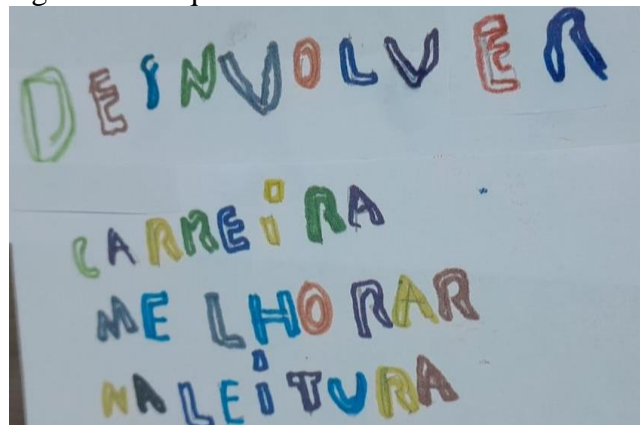 DEINVOLVER
CARREIRA
MELHORAR
NA LEITURA